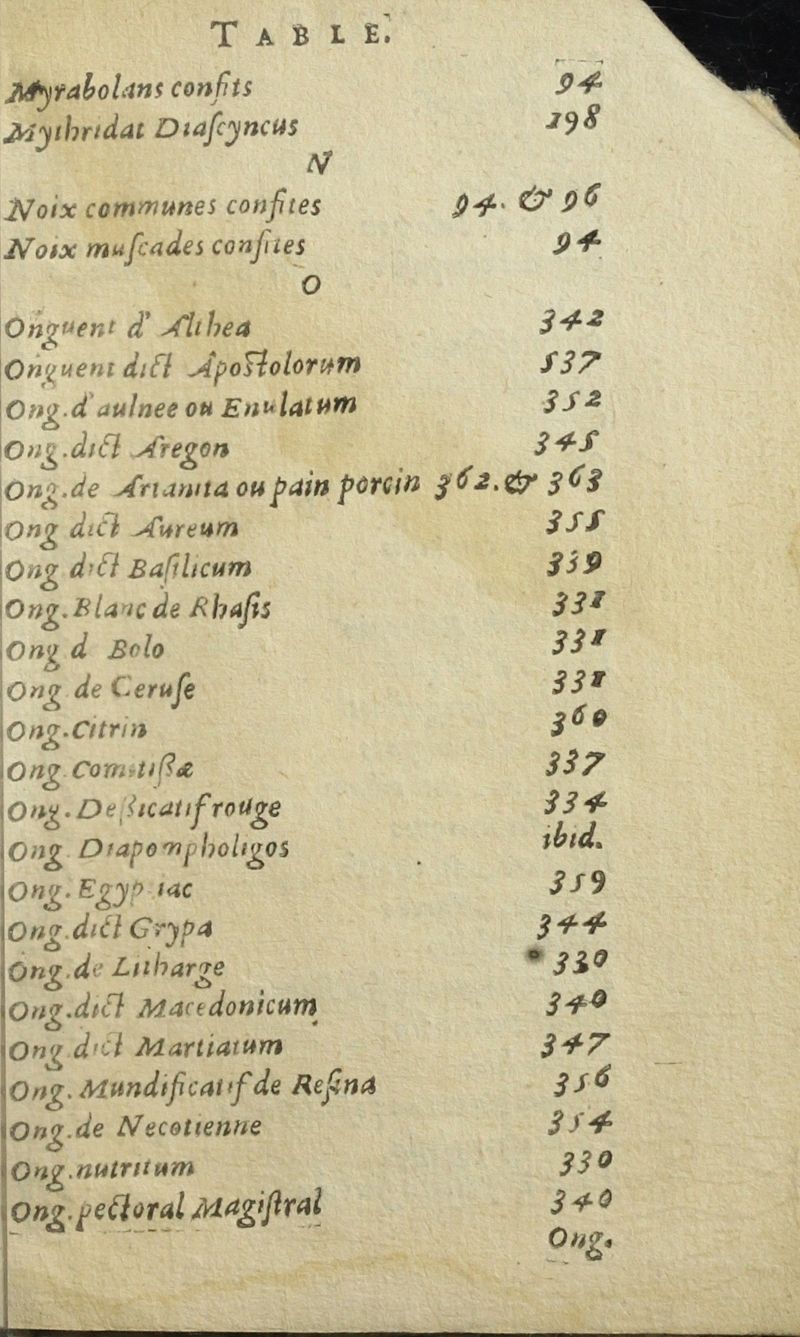 TABLE.
Myrabolans confits 94
Mythridat Diaſcyncus 198
N
Noix communes confites 94. & 96
Noix muſcades confites 94
O
Onguent d' Althea 342
Onguent dict Apoſtolorum 537
Ong. d'aulnee ou Enulatum 352
Ong. dict Aregon 345
Ong. de Arianita ou pain porcin 362. & 363
Ong dict Aureum 355
Ong dict Baſilicum 339
Ong. Blanc de Rhaſis 331
Ong d Bolo 331
Ong de Ceruſe 331
Ong. Citrin 360
Ong Comitiſſæ 337
Ong. Deſſicatif rouge 334
Ong Diapompholigos ibid.
Ong. Egyptiac 359
Ong. dict Grypa 344
Ong. de Litharge 330
Ong. dict Macedonicum 340
Ong dict Martiatum 347
Ong. Mundificatif de Reſina 356
Ong. de Necotienne 354
Ong. nutritum 330
Ong. pectoral Magiſtral 340
Ong.